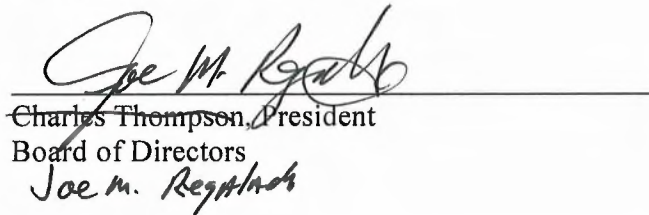 Joe M. Regalado
Charles Thompson, President
Board of Directors
Joe M. Regalado